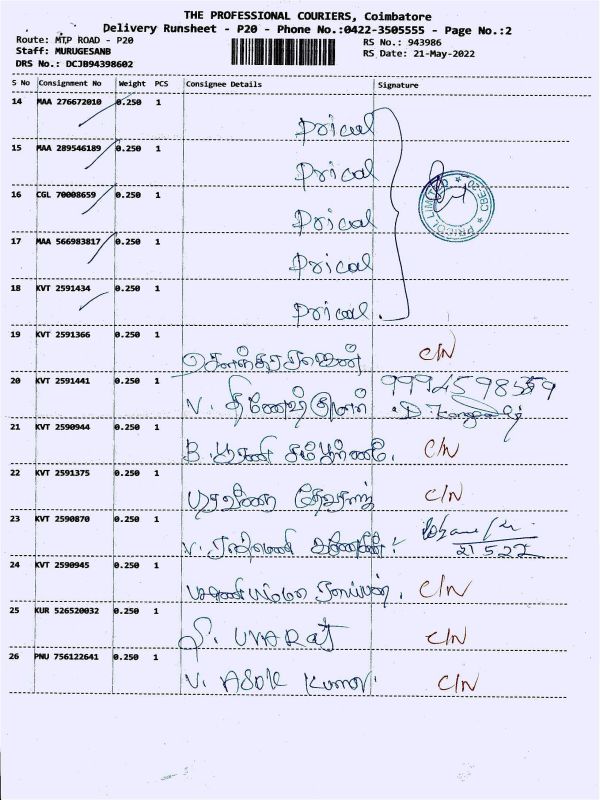 THE PROFESSIONAL COURIERS, Coimbatore
Delivery Runsheet - P20 - Phone No.:0422-3505555 - Page No.:2
Route: MTP ROAD - P20
RS No.: 943986
Staff: MURUGESANB
RS Date: 21-May-2022
DRS No.: DCJB94398602
S No Consignment No Weight PCS Consignee Details Signature
14 MAA 276672010 0.250 1
Pricol
15 MAA 289546189 0.250 1
Pricol
16 CGL 70008659 0.250 1
Pricol
PRICOL LIMITED * CBE-20 *
17 MAA 566983817 0.250 1
Pricol
18 KVT 2591434 0.250 1
Pricol
19 KVT 2591366 0.250 1
C/N
20 KVT 2591441 0.250 1
V.
21 KVT 2590944 0.250 1
B. C/N
22 KVT 2591375 0.250 1
C/N
23 KVT 2590870 0.250 1
V.
21 5 22
24 KVT 2590945 0.250 1
C/N
25 KUR 526520032 0.250 1
S. UVARAJ C/N
26 PNU 756122641 0.250 1
V. ASOK Kumar. C/N